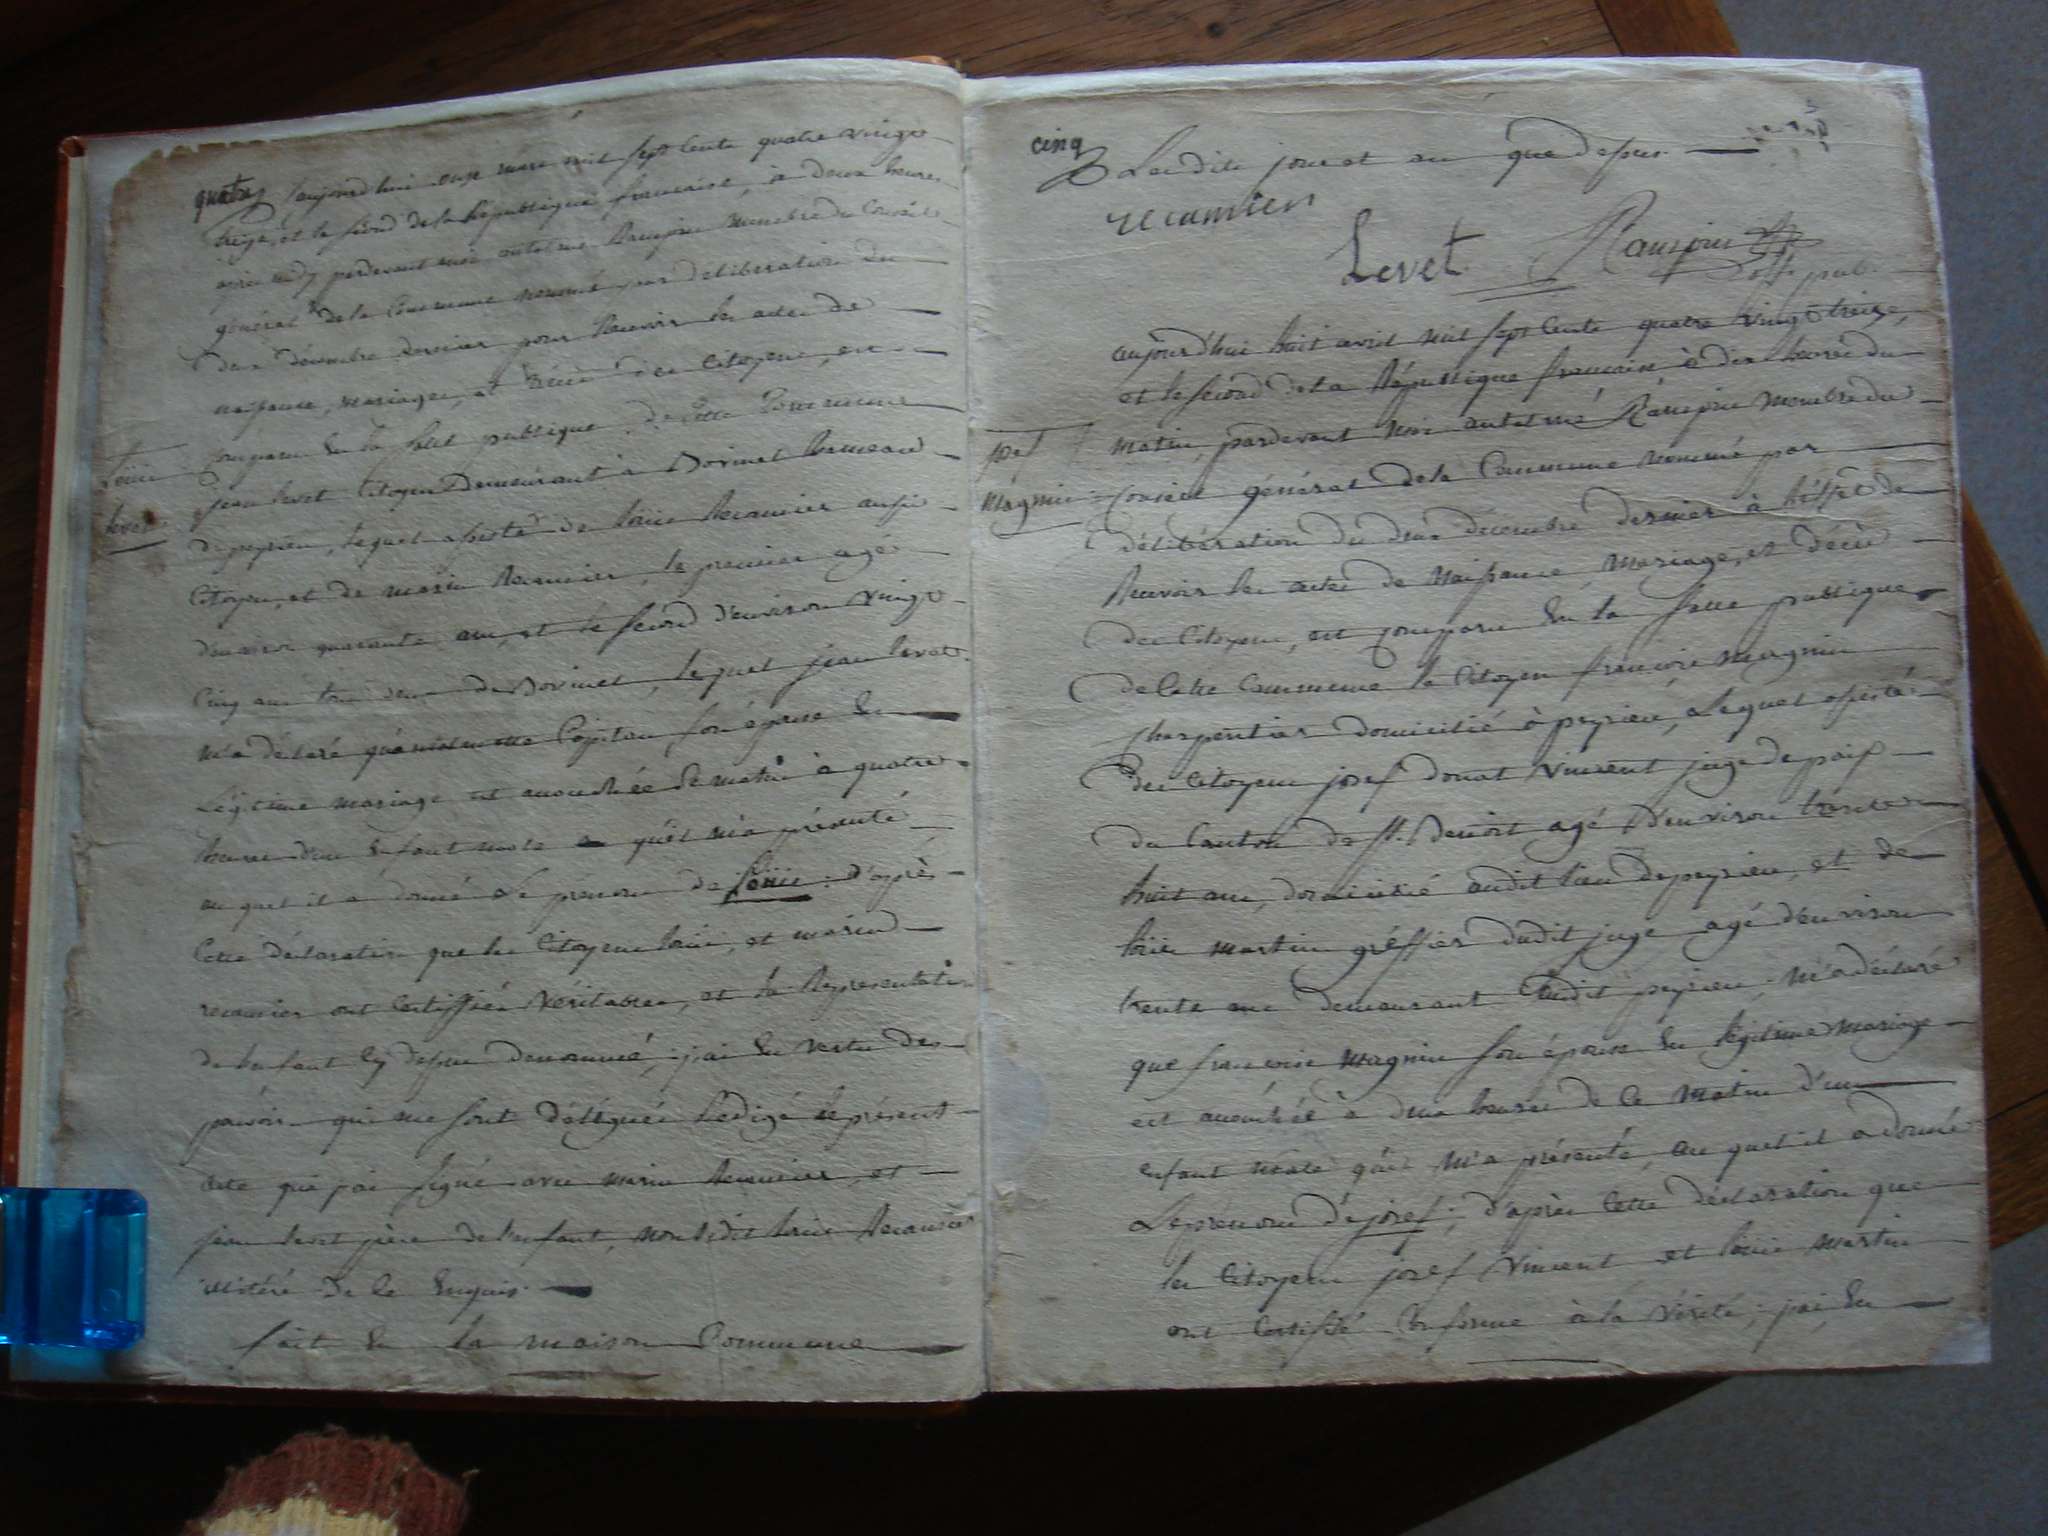 quatre
aujourd'hui onze mars mil sept cents quatre vingt
treize, et le second de la République francaise, à deux heures
après midy pardevant moi antelme Rampin membre du Conseil
général de la Commune nommé par deliberation du
deux décembre dernier pour Recevoir les actes de
naissance, mariages, et décès des Citoyens, est
comparu En la salle publique de Cette Commune
Loüis
levet
jean levet Citoyen Demeurant à hameau
de peyrieu, lequel assisté de loüis Recamier aussi
Citoyen, et de marin Recamier, le premier agé
d'environ quarante ans, et le second d'environ vingt
Cinq ans tous deux de lequel jean levet
m'a déclaré Capitan son épouse En
Légitime mariage est accouchée Ce matin à quatre
heures d'un Enfant male qu'il m'a présenté
au quel il a donné Le prenom de Loüis : d'après
Cette déclaration que les Citoyens loüis, et marin
recamier ont Certiffiée véritable, et la Représentation
de l'enfant Cy dessus denommé, j'ai En vertu des
pouvoirs qui me sont délégués Rédigé le présent
acte que j'ai signé avec marin Recamier, et
jean levet père de l'enfant, non ledit loüis Recamier
illitéré de Ce Enquis.
fait En la maison Commune
cinq
Lesdits jour et an que dessus.
recamier
Levet Rampin
off. pub.
aujourd'huy huit avril mil sept Cents quatre vingt treize,
et le second de la République francaise à dix heures du
matin, pardevant moi antelme Rampin Membre du
josef
Magnin
Conseil général de la Commune Nommé par
délibération du deux décembre dernier à l'éffet de
Recevoir les actes de Naissance, Mariage, et décès
des Citoyens, est comparu En la salle publique
de Cette Commune le Citoyen francois Magnin
charpentier domicilié à peyrieu, Lequel assisté
des Citoyens josef donat Vincent juge de paix
du Canton de St. Benoit agé d'environ trente
huit ans, domicilié audit lieu de peyrieu, et de
loüis martin gréffier dudit juge agé d'environ
trente ans demeurant audit peyrieu, m'a déclaré
que francoise Magnin son épouse En légitime Mariage
est accouchée à deux heures de Ce matin d'un
enfant mâle qu'il M'a présenté, au quel il a donné
Le prénom de josef ; d'après Cette déclaration que
les Citoyens josef Vincent et loüis martin
ont Certiffié Conforme à la vérité, j'ai, En